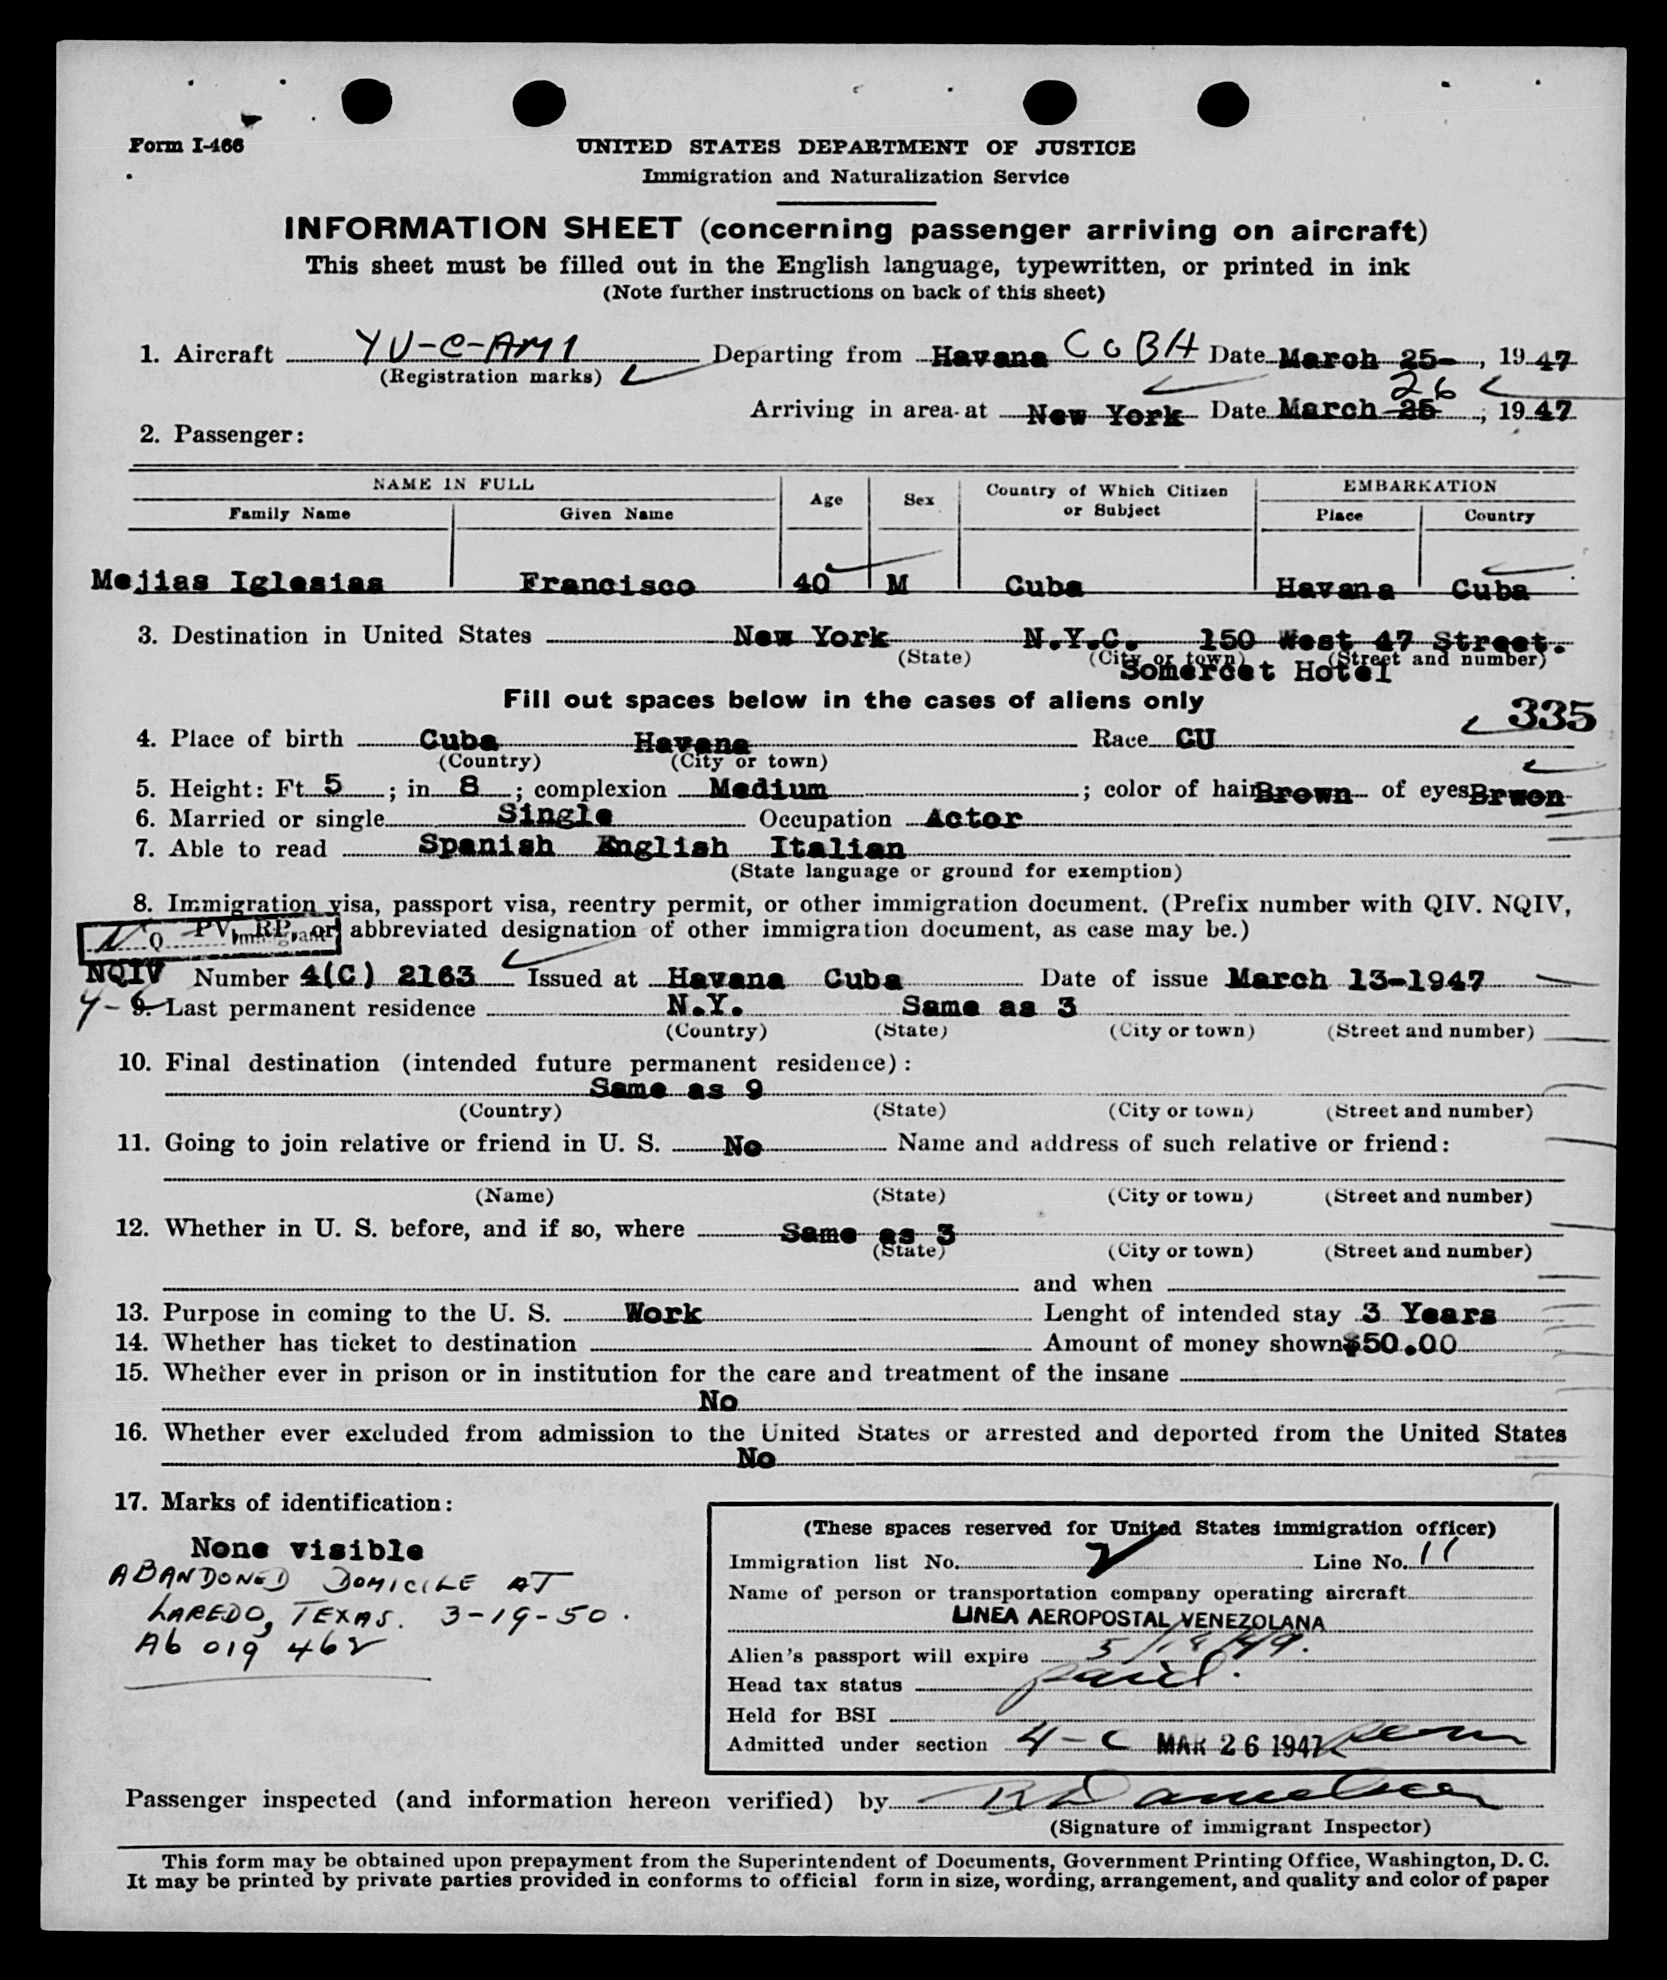 Form I-466
UNITED STATES DEPARTMENT OF JUSTICE
Immigration and Naturalization Service
INFORMATION SHEET (concerning passenger arriving on aircraft)
This sheet must be filled out in the English language, typewritten, or printed in ink
(Note further instructions on back of this sheet)
1. Aircraft YU-C-AM1 Departing from Havana COBH Date March 25-, 19 47
(Registration marks)
26
Arriving in area at New York Date March 25, 19 47
2. Passenger:
NAME IN FULL Age Sex Country of Which Citizen or Subject EMBARKATION
Family Name Given Name Place Country
Mejias Iglesias Francisco 40 M Cuba Havana Cuba
3. Destination in United States New York N.Y.C. 150 West 47 Street.
(State) (City or town) (Street and number)
Somercet Hotel
Fill out spaces below in the cases of aliens only
335
4. Place of birth Cuba Havana Race CU
(Country) (City or town)
5. Height: Ft 5 ; in. 8 ; complexion Medium ; color of hair Brown of eyes Brwon
6. Married or single Single Occupation Actor
7. Able to read Spanish English Italian
(State language or ground for exemption)
8. Immigration visa, passport visa, reentry permit, or other immigration document. (Prefix number with QIV. NQIV,
PV, RP, or abbreviated designation of other immigration document, as case may be.)
Q Immigrant
NQIV Number 4(C) 2163 Issued at Havana Cuba Date of issue March 13-1947
4-c
9. Last permanent residence N.Y. Same as 3
(Country) (State) (City or town) (Street and number)
10. Final destination (intended future permanent residence):
Same as 9
(Country) (State) (City or town) (Street and number)
11. Going to join relative or friend in U. S. No Name and address of such relative or friend:
(Name) (State) (City or town) (Street and number)
12. Whether in U. S. before, and if so, where Same as 3
(State) (City or town) (Street and number)
and when
13. Purpose in coming to the U. S. Work Lenght of intended stay 3 Years
14. Whether has ticket to destination Amount of money shown $50.00
15. Whether ever in prison or in institution for the care and treatment of the insane
No
16. Whether ever excluded from admission to the United States or arrested and deported from the United States
No
17. Marks of identification:
None visible
ABANDONED DOMICILE AT
LAREDO, TEXAS. 3-19-50.
A6 019 462
(These spaces reserved for United States immigration officer)
Immigration list No. 2 Line No. 11
Name of person or transportation company operating aircraft
LINEA AEROPOSTAL VENEZOLANA
Alien's passport will expire 5/18/49.
Head tax status paid.
Held for BSI
Admitted under section 4-C MAR 26 1947 perm
Passenger inspected (and information hereon verified) by
(Signature of immigrant Inspector)
This form may be obtained upon prepayment from the Superintendent of Documents, Government Printing Office, Washington, D. C.
It may be printed by private parties provided in conforms to official form in size, wording, arrangement, and quality and color of paper